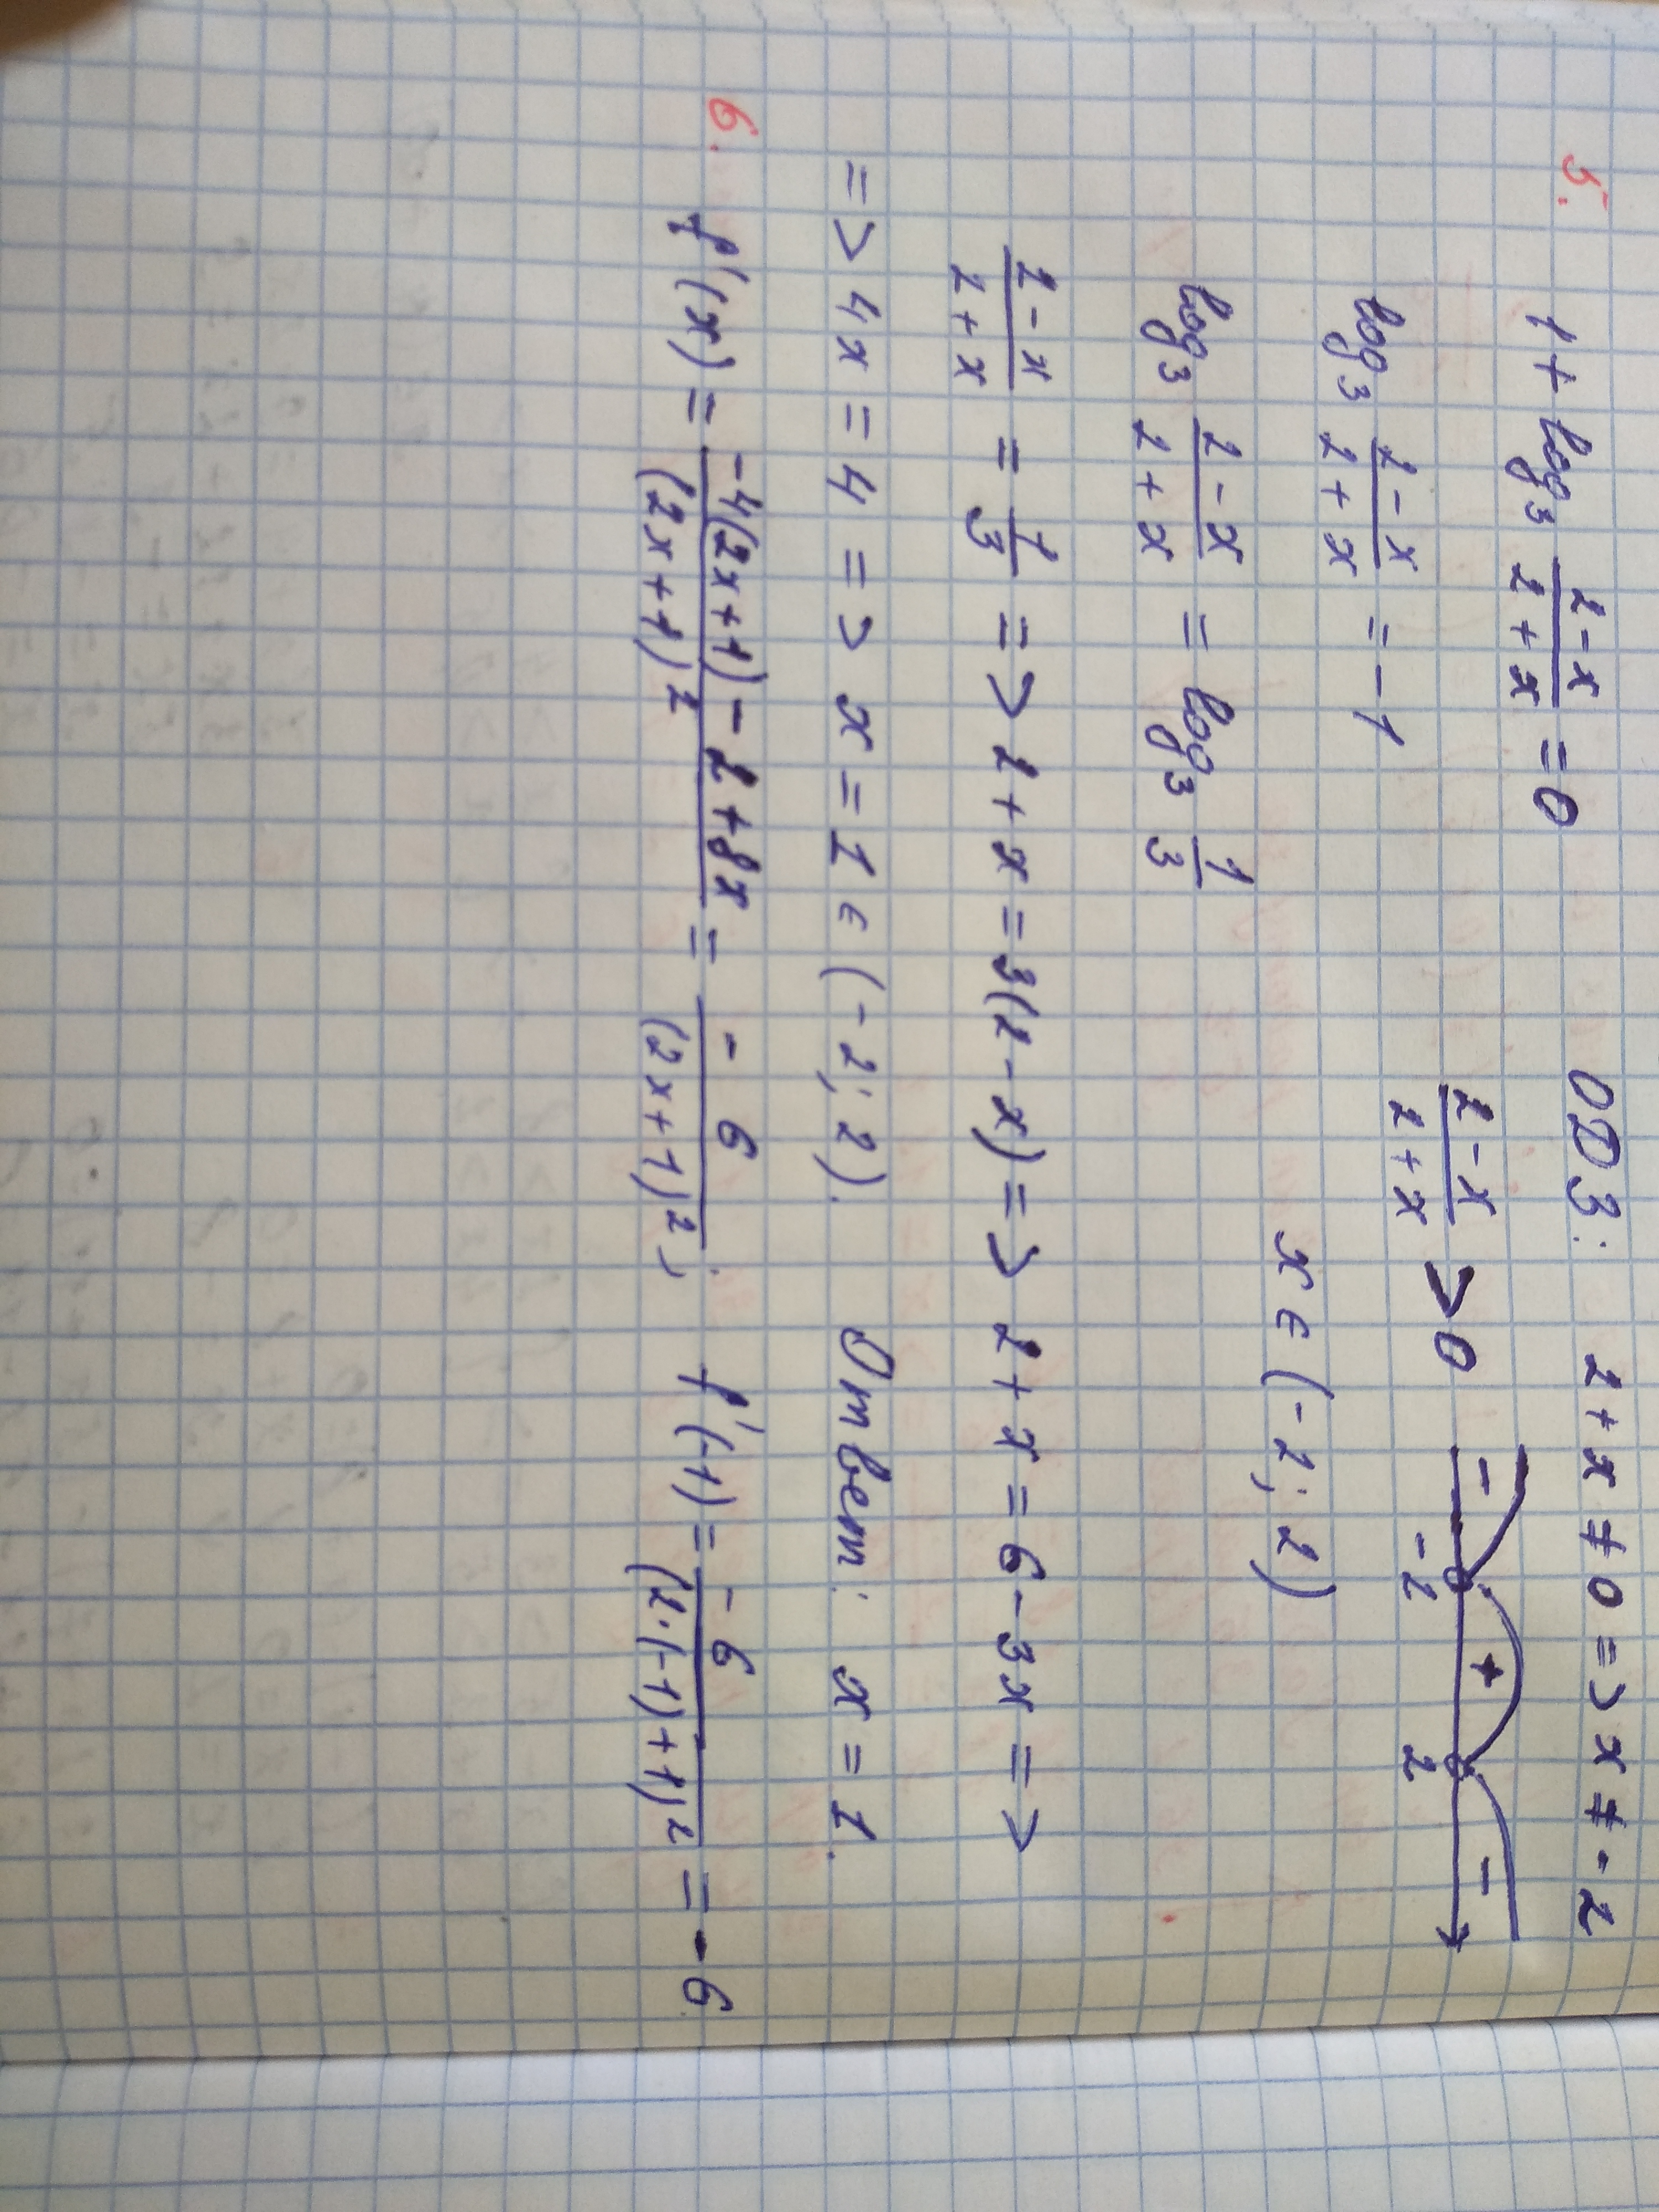 5. 1 + log₃ (2-x)/(2+x) = 0 ОДЗ: 2+x ≠ 0 => x ≠ -2
log₃ (2-x)/(2+x) = -1 (2-x)/(2+x) > 0 - -2 + 2 -
log₃ (2-x)/(2+x) = log₃ 1/3 x ∈ (-2; 2)
(2-x)/(2+x) = 1/3 => 2+x = 3(2-x) => 2+x = 6-3x =>
=> 4x = 4 => x = 1 ∈ (-2; 2). Ответ: x = 1.
6. f'(x) = (-4(2x+1) - 2 + 8x)/(2x+1)² = -6/(2x+1)²; f'(-1) = -6/(2·(-1)+1)² = -6.